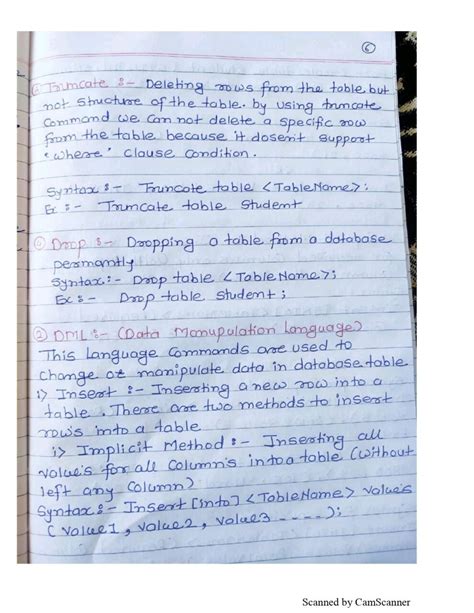 6
Truncate :- Deleting rows from the table but
not structure of the table. by using truncate
Command we can not delete a specific row
from the table because it dosen't support
"where" clause condition.
Syntax :- Truncate table <TableName>;
Ex :- Truncate table Student
Drop :- Dropping a table from a database
permantly
Syntax :- Drop table <TableName>;
Ex :- Drop table student ;
2 DML :- (Data Manupulation Language)
This Language Commands are used to
Change or manipulate data in database table
i) Insert :- Inserting a new row into a
table . There are two methods to insert
rows into a table
i) Implicit Method :- Inserting all
value's for all Column's into a table (without
left any Column)
Syntax :- Insert [into] <TableName> value's
( value1 , value2 , value3 - - - - );
Scanned by CamScanner